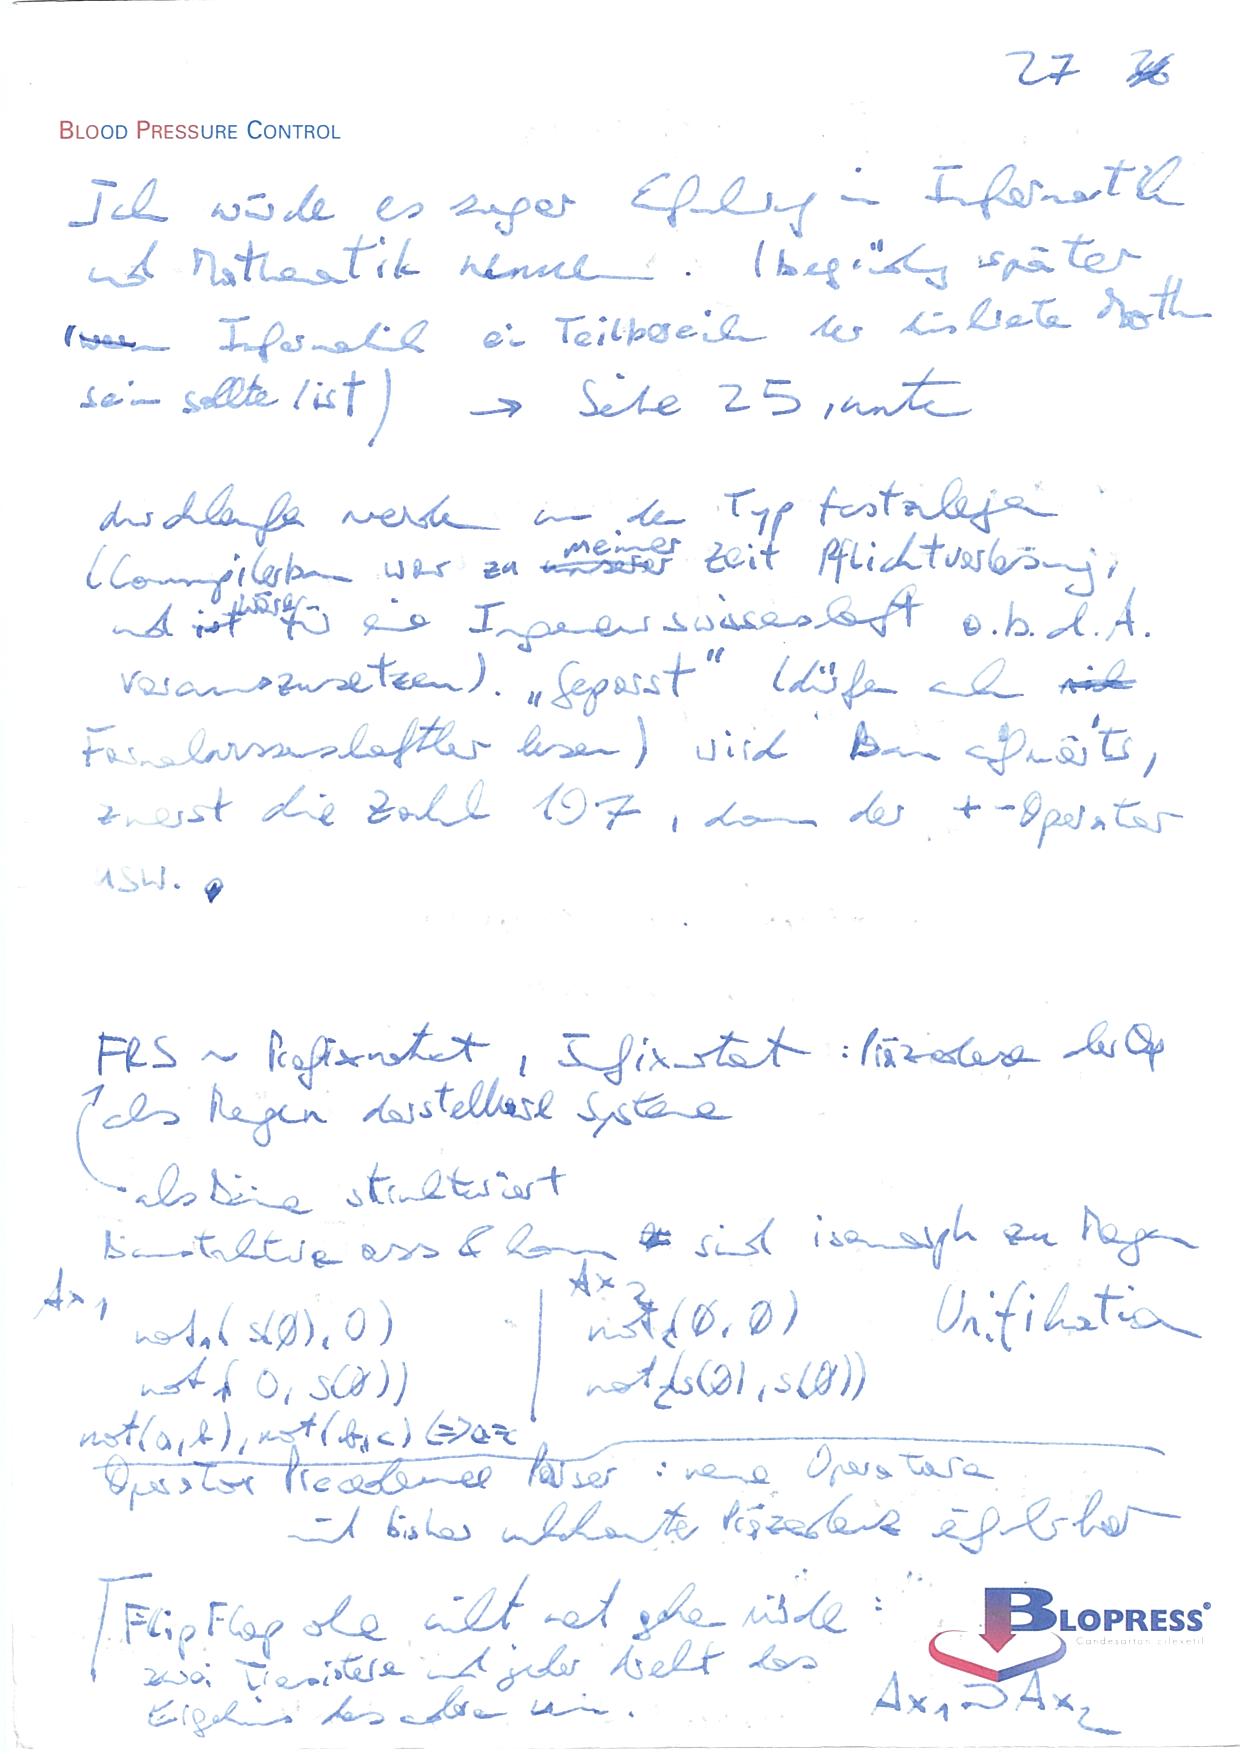 27
BLOOD PRESSURE CONTROL
Ich würde es sogar Einführung in Informatik
und Mathematik nennen. (Begründung später
Informatik ein Teilbereich der diskrete Math
sein sollte /ist) → Seite 25, unten
durchlaufen werden um den Typ festzulegen
(Compilerbau war zu meiner Zeit Pflichtvorlesung,
und wäre für eine Ingenieurswissenschaft o.b.d.A.
vorauszusetzen). „Geparst" (dürfen auch
Formalwissenschaftler lesen) wird Baum aufwärts,
zuerst die Zahl 197, dann der +-Operator
usw.
FRS ~ Prefixnotat, Infixnotat : Präzedenz der Op
als Mengen darstellbare Systeme
als Bäume strukturiert
Baumstruktur ass & kom sind isomorph zu Mengen
Ax1 Ax2
not1(s(0), 0) not2(0, 0) Unifikation
not1(0, s(0)) not2(s(0), s(0))
not(a,b), not(b,c) (=) a=c
Operator Precedence Parser : neue Operatoren
mit bisher unbekannter Präzedenz einführbar
FlipFlop ohne nicht gehen würde :
zwei Transistoren und jeder dreht das
Ergebnis des andern um.
BLOPRESS®
Candesartan cilexetil
Ax1 ⊃ Ax2